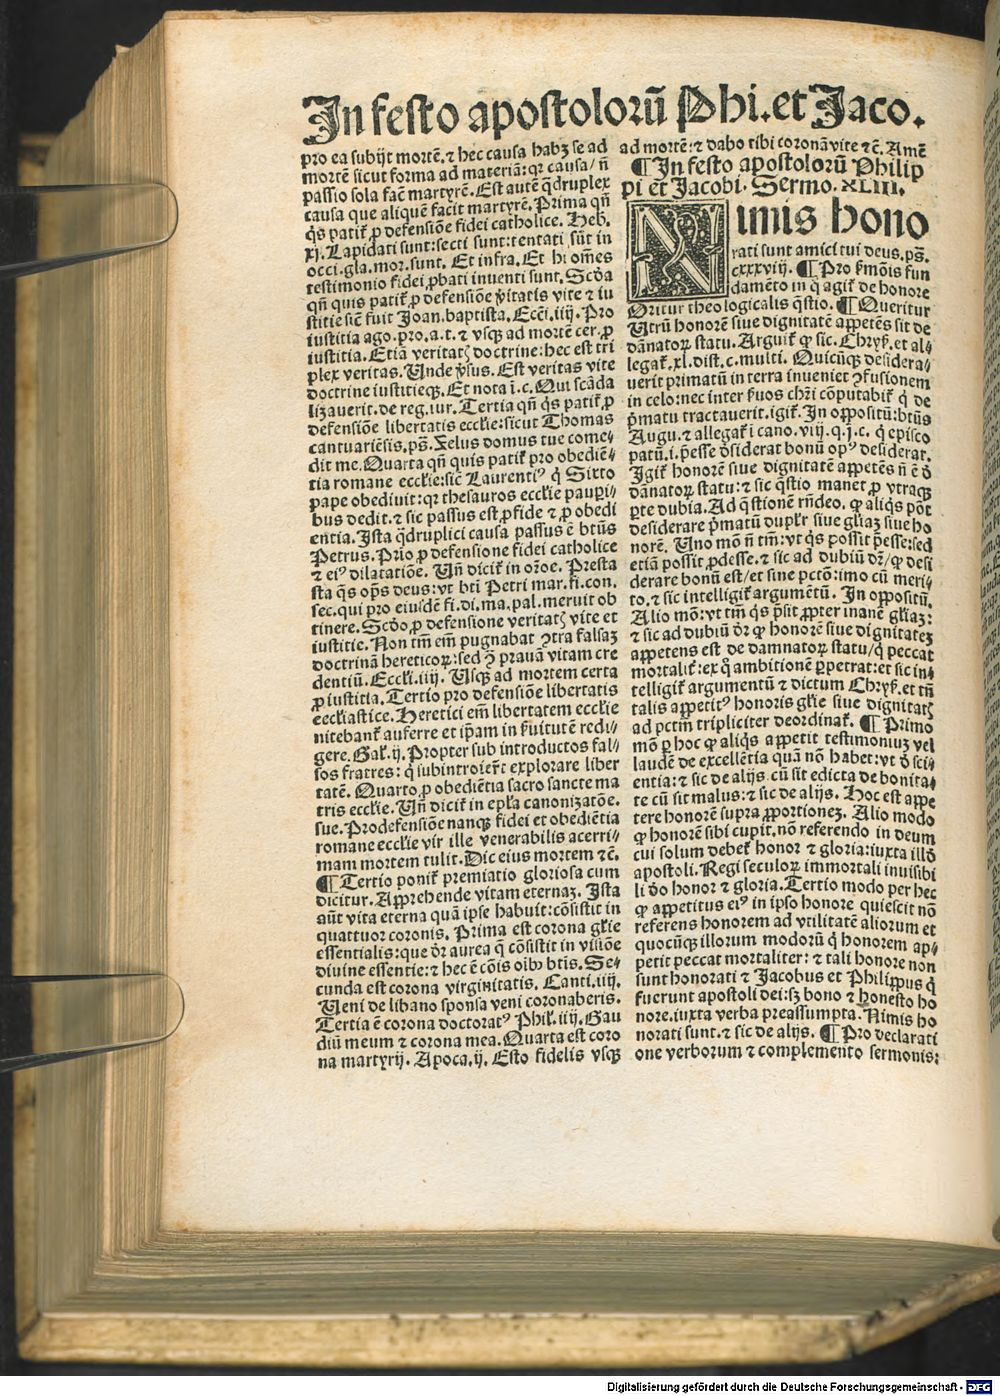 In festo apostolorū Phi. et Jaco.
pro ea subijt mortē. ⁊ hec causa habꝫ se ad
mortē sicut forma ad materiā: qꝛ causa / ñ
passio sola facͭ martyrē. Est autē q̄druplex
causa que aliquē facit martyrē. Prima qñ
q̇s patiť ꝓ defensiōe fidei catholice. Heb.
xj. Lapidati sunt: secti sunt: tentati sūt in
occi. gla. mor. sunt. Et infra. Et hi oīnes
testimonio fidei ꝓbati inuenti sunt. Scďa
qñ quis patiť ꝓ defensiōe v̓itatis vite ⁊ iu
stitie sič fuit Joan. baptista. Eccī. iiij. Pro
iustitia ago. pro. a. t. ⁊ vsqꝫ ad mortē cer. ꝓ
iustitia. Etiā veritatꝭ doctrine: hec est tri
plex veritas. Unde v̓sus. Est veritas vite
doctrine iustitieqꝫ. Et nota ī. c. Qui scāda
lizauerit. de reg. iur. Tertia qñ q̇s patiť ꝓ
defensiōe libertatis eccłie: sicut Thomas
cantuariēsis. ps̄. Zelus domus tue come⸗
dit me. Quarta qñ quis patiť pro obediē⸗
tia romane eccłie: sič Laurentiꝰ q̇ Sixto
pape obediuit: qꝛ thesauros eccłie pauꝑi⸗
bus dedit. ⁊ sic passus est ꝓ fide ⁊ ꝓ obedi
entia. Ista q̄druplici causa passus ē btūs
Petrus. Prīo ꝓ defensione fidei catholice
⁊ eiꝰ dilatatiōe. Uñ diciť in oꝛ̄oe. Presta
sta q̄s op̄s deus: vt bt̄i Petri mar. fi. con.
sec. qui pro eiusdē fi. di. ma. pal. meruit ob
tinere. Scďo ꝓ defensione veritatꝭ vite et
iustitie. Non tm̄ em̄ pugnabat ꝯtra falsaꝫ
doctrinā hereticoꝝ: sed ꝯ̄ prauā vitam cre
dentiū. Eccłi. iiij. Usqꝫ ad mortem certa
ꝓ iustitia. Tertio pro defensiōe libertatis
eccłiastice. Heretici em̄ libertatem eccłie
nitebanť auferre et ip̄am in ẜuitutē redi⸗
gere. Gał. ij. Propter sub introductos fal⸗
sos fratres: q̇ subintroierūt explorare liber
tatē. Quarto ꝓ obediētia sacro sancte ma
tris eccłie. Uñ diciť in epła canonizatōe.
sue. Pro defensiōe nanqꝫ fidei et obediētia
romane eccłie vir ille venerabilis acerri⸗
mam mortem tulit. Dic eius mortem ⁊c̄.
¶ Tertio poniť premiatio gloriosa cum
dicitur. Apprehende vitam eternaꝫ. Ista
aūt vita eterna quā ipse habuit: cōsistit in
quattuor coronis. Prima est corona głie
essentialis: que dr̄ aurea q̄ cōsistit in visiōe
diuine essentie: ⁊ hec ē cōis oibꝰ bt̄is. Se⸗
cunda est corona virginitatis. Canti. iiij.
Ueni de libano sponsa veni coronaberis.
Tertia ē corona doctoratꝰ Phił. iiij. Gau
diū meum ⁊ corona mea. Quarta est coro
na martyrij. Apoca. ij. Esto fidelis vsqꝫ
ad mortē: ⁊ dabo tibi coronā vite ⁊c̄. Amē
¶ In festo apostolorū Philip
pi et Jacobi. Sermo. XLIII.
Nimis hono
rati sunt amici tui deus. ps̄.
cxxxviij. ¶ Pro ẜmōis fun
damēto in q̄ agiť de honore
Oritur theologicalis q̄stio. ¶ Queritur
Utrū honorē siue dignitatē appetēs sit de
dānatoꝝ statu. Arguiť ꝙ sic. Chryẜ. et al⸗
legať. xl. dist. c. multi. Quicūqꝫ desidera⸗
uerit primatū in terra inueniet ꝯfusionem
in celo: nec inter ẜuos chr̄i cōputabiť q̇ de
p̄matu tractauerit. igiť. In oppositū: btūs
Augu. ⁊ allegať i cano. viij. q. j. c. q̇ episco
patū. i. p̄esse d̓siderat bonū opꝰ desiderat.
Igiť honorē siue dignitatē appetēs ñ ē d̓
dānatoꝝ statu: ⁊ sic q̄stio manet ꝓ vtraqꝫ
ꝑte dubia. Ad q̄stionē rñdeo. ꝙ aliq̇s pōt
desiderare p̄matū dupłr siue głiaꝫ siue ho
norē. Uno mō ñ tm̄: vt q̇s possit p̄esse: sed
etiā possit ꝓdesse. ⁊ sic ad dubiū dꝛ̄ / ꝙ desi
derare bonū est / et sine pctō: imo cū meri⸗
to. ⁊ sic intelligiť argumētū. In oppositū.
Alio mō: vt tm̄ q̇s p̄sit ꝓpter inanē głiaꝫ:
⁊ sic ad dubiū dr̄ ꝙ honorē siue dignitateꝫ
appetens est de damnatoꝝ statu / q̇ peccat
mortaliť: ex q̄ ambitionē ꝑpetrat: et sic in⸗
telligiť argumentū ⁊ dictum Chryẜ. et tñ
talis appetitꝰ honoris głie siue dignitatꝭ
ad pctm̄ tripliciter deordinať. ¶ Primo
mō ꝑ hoc ꝙ aliq̇s appetit testimoniuꝫ vel
laudē de excellētia quā nō habet: vt d̓ sci⸗
entia: ⁊ sic de alijs. cū sit edicta de bonita⸗
te cū sit malus: ⁊ sic de alijs. Hoc est appe
tere honorē supra ꝓportioneꝫ. Alio modo
ꝙ honorē sibi cupit. nō referendo in deum
cui solum debeť honor ⁊ gloria: iuxta illď
apostoli. Regi seculoꝝ immortali inuisibi
li ďo honor ⁊ gloria. Tertio modo per hec
ꝙ appetitus eiꝰ in ipso honore quiescit nō
referens honorem ad vtilitatē aliorum et
quocūqꝫ illorum modorū q̇ honorem ap⸗
petit peccat mortaliter: ⁊ tali honore non
sunt honorati ⁊ Jacobus et Philippus q̇
fuerunt apostoli dei: sꝫ bono ⁊ honesto ho
nore. iuxta verba preassumpta. Nimis ho
norati sunt. ⁊ sic de alijs. ¶ Pro declarati
one verborum ⁊ complemento sermonis:
Digitalisierung gefördert durch die Deutsche Forschungsgemeinschaft - DFG